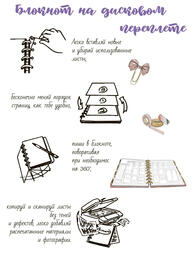 Блокнот на дисковом
переплете
Легко вставляй новые
и убирай использованные
листы,
Бесконечно меняй порядок
страниц, как тебе удобно,
пиши в блокноте,
поворачивая
при необходимос
на 360°,
копируй и сканируй листы
без теней
и дефектов, легко добавляй
распечатанные материалы
и фотографии.